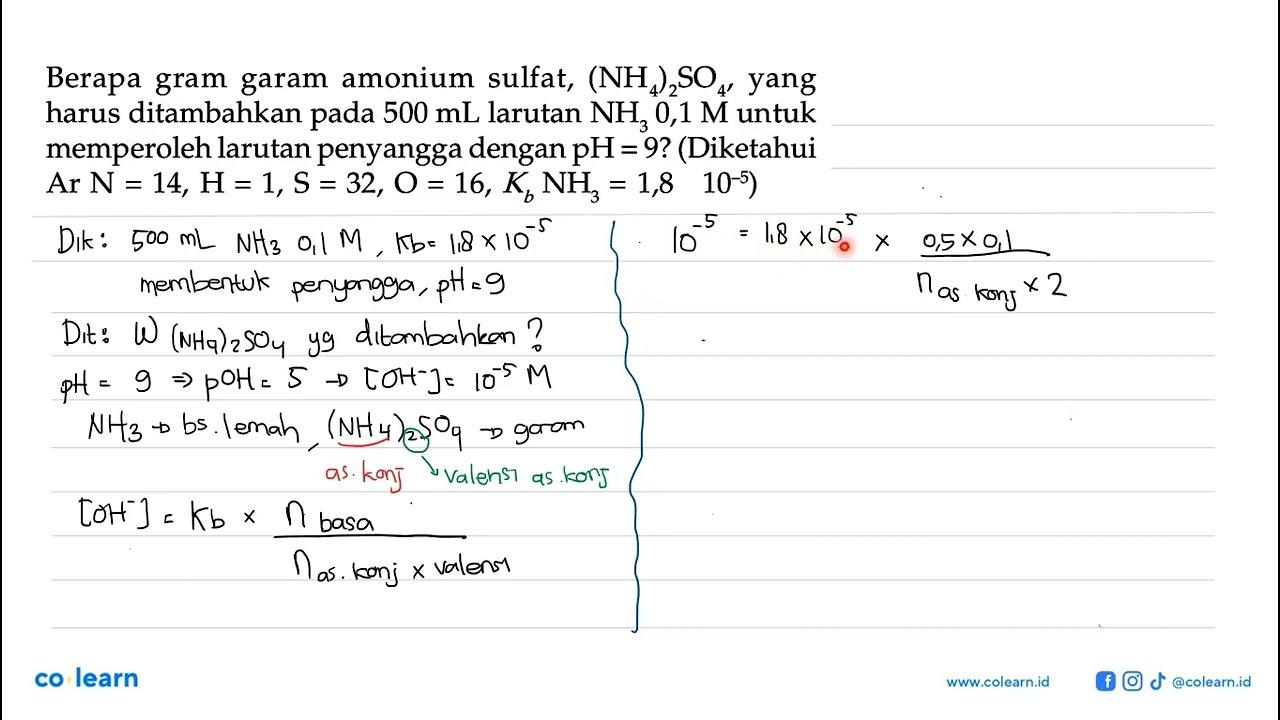 Berapa gram garam amonium sulfat, (NH₄)₂SO₄, yang
harus ditambahkan pada 500 mL larutan NH₃ 0,1 M untuk
memperoleh larutan penyangga dengan pH = 9? (Diketahui
Ar N = 14, H = 1, S = 32, O = 16, K_b NH₃ = 1,8 10⁻⁵)
Dik: 500 mL NH₃ 0,1 M, Kb = 1,8 × 10⁻⁵
membentuk penyangga, pH = 9
Dit: W (NH₄)₂SO₄ yg ditambahkan?
pH = 9 ⇒ pOH = 5 → [OH⁻] = 10⁻⁵ M
NH₃ → bs. lemah, (NH₄)₂SO₄ → garam
as. konj valensi as. konj
[OH⁻] = Kb × n basa
n as. konj × valensi
10⁻⁵ = 1,8 × 10⁻⁵ × 0,5 × 0,1
n as konj × 2
co learn
www.colearn.id @colearn.id